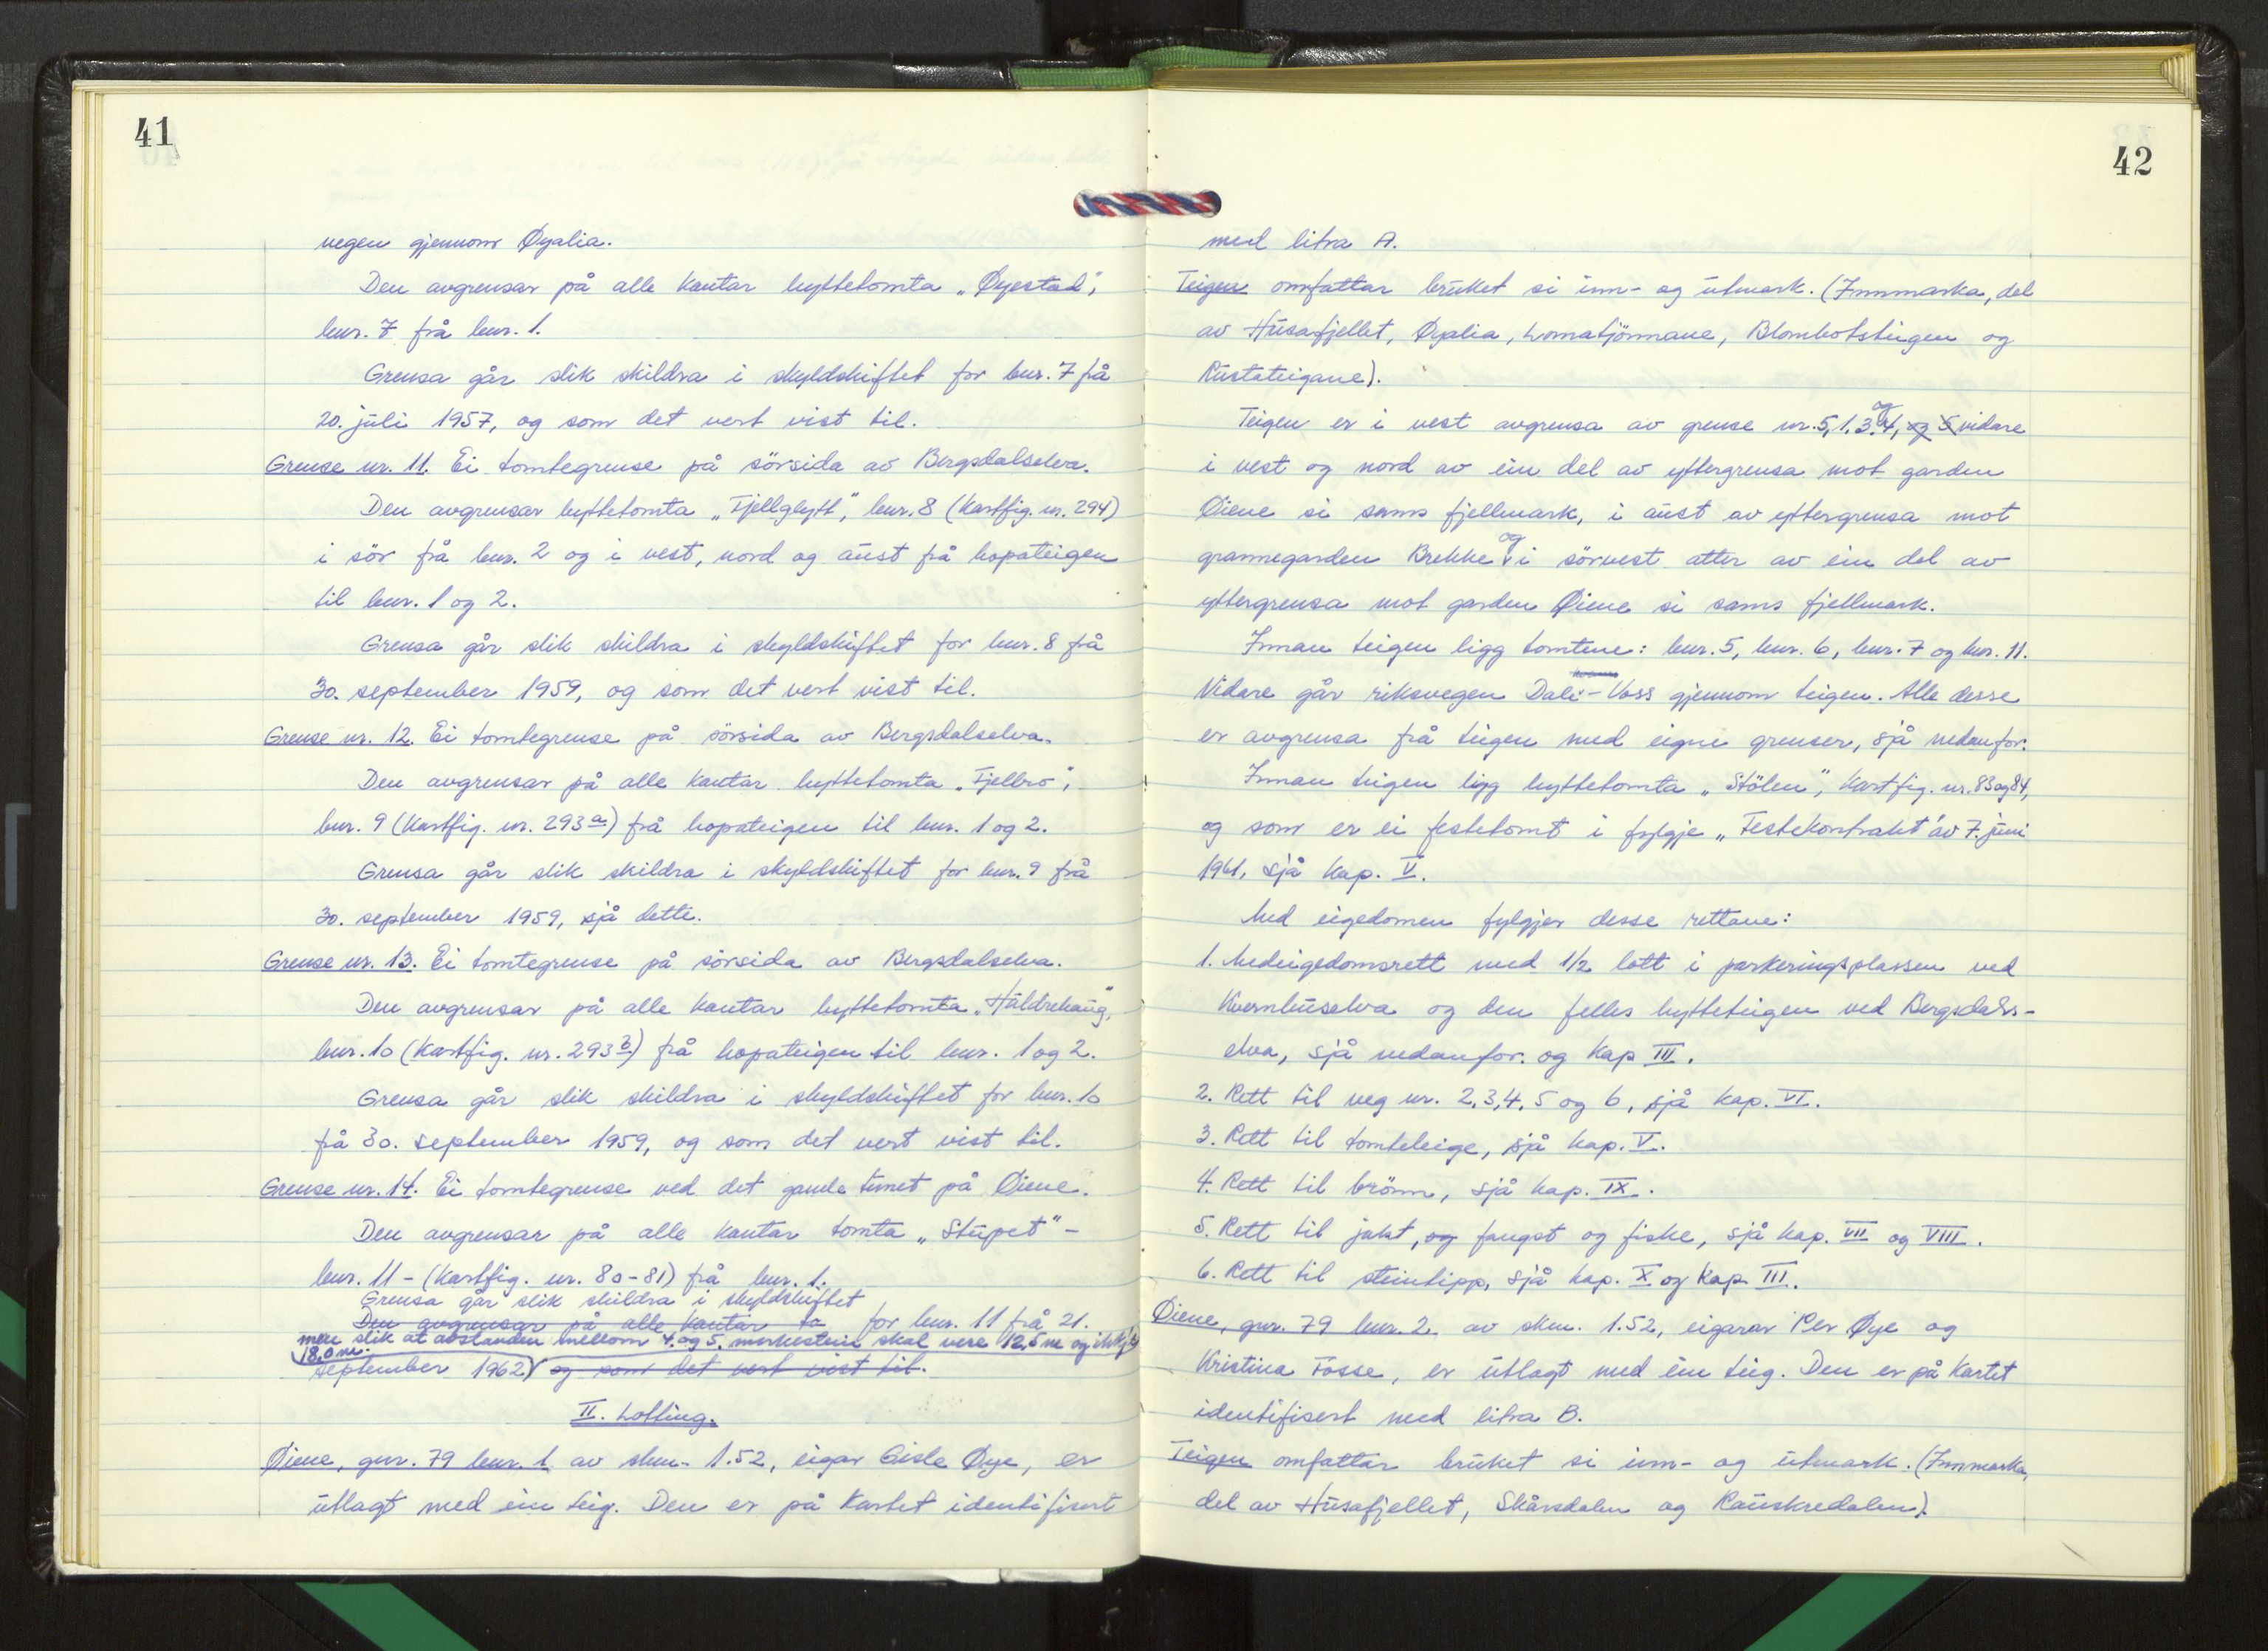 41
vegen gjennom Øyalia.
Den avgrensar på alle kantar hyttetomta „Øyestad",
bnr. 7 frå bnr. 1.
Grensa går slik skildra i skyldskiftet for bnr. 7 frå
20. juli 1957, og som det vert vist til.
Grense nr. 11. Ei tomtegrense på sörsida av Bergsdalselva.
Den avgrensar hyttetomta „Fjellglytt", bnr. 8 (Kartfig. nr. 294)
i sör frå bnr. 2 og i vest, nord og aust frå hopateigen
til bnr. 1 og 2.
Grensa går slik skildra i skyldskiftet for bnr. 8 frå
30. september 1959, og som det vert vist til.
Grense nr. 12. Ei tomtegrense på sörsida av Bergsdalselva.
Den avgrensar på alle kantar hyttetomta „Fjellro",
bnr. 9 (Kartfig. nr. 293a) frå hopateigen til bnr. 1 og 2.
Grensa går slik skildra i skyldskiftet for bnr. 9 frå
30. september 1959, sjå dette.
Grense nr. 13. Ei tomtegrense på sörsida av Bergsdalselva.
Den avgrensar på alle kantar hyttetomta „Huldrehaug",
bnr. 10 (Kartfig. nr. 293b) frå hopateigen til bnr. 1 og 2.
Grensa går slik skildra i skyldskiftet for bnr. 10
frå 30. september 1959, og som det vert vist til.
Grense nr. 14. Ei tomtegrense ved det gamle tunet på Öiene.
Den avgrensar på alle kantar tomta „Stupet" -
bnr. 11 - (Kartfig. nr. 80-81) frå bnr. 1.
Grensa går slik skildra i skyldskiftet
Den avgrensar på alle kantar to for bnr. 11 frå 21.
men slik at avstanden mellom 4. og 5. merkestein skal vere 12,5 m og ikkje
18.0 m.
september 1962) og som det vert vist til.
II. Lotting.
Öiene, gnr. 79 bnr. 1 av skm. 1.52, eigar Gisle Øye, er
utlagt med ein teig. Den er på Kartet identifisert
42
med litra A.
Teigen omfattar bruket si inn- og utmark. (Innmarka, del
av Husafjellet, Øyalia, Lomatjörnnane, Blombotstingen og
Rustateigane).
og
Teigen er i vest avgrensa av grense nr. 5, 1. 3. 4, og 5 vidare
i vest og nord av ein del av yttergrensa mot garden
Öiene si sams fjellmark, i aust av yttergrensa mot
og
grannegarden Brekke i sörvest atter av ein del av
yttergrensa mot garden Öiene si sams fjellmark.
Innan teigen ligg tomtene: bnr. 5, bnr. 6, bnr. 7 og bnr. 11.
Vidare går riksvegen Dale-Voss gjennom teigen. Alle desse
er avgrensa frå teigen med eigne grenser, sjå nedanfor.
Innan teigen ligg hyttetomta „Stölen", Kartfig. nr. 83 og 84,
og som er ei festetomt i fylgje „Festekontrakt" av 7. juni
1961, sjå Kap. V.
Med eigedomen fylgjer desse rettane:
1. Medeigedomsrett med 1/2 lott i parkeringsplassen ved
Kvernhuselva og den felles hytteteigen ved Bergsdals-
elva, sjå nedanfor. og Kap III.
2. Rett til veg nr. 2, 3, 4, 5 og 6, sjå kap. VI.
3. Rett til tomteleige, sjå kap. V.
4. Rett til brönn, sjå kap. IX.
5. Rett til jakt, og fangst og fiske, sjå kap. VII og VIII.
6. Rett til steintipp, sjå kap. X og Kap III.
Öiene, gnr. 79 bnr. 2. av skm. 1.52, eigarar Per Øye og
Kristina Fosse, er utlagt med ein teig. Den er på Kartet
identifisert med litra B.
Teigen omfattar bruket si inn- og utmark. (Innmarka,
del av Husafjellet, Skårsdalen og Rauskredalen).